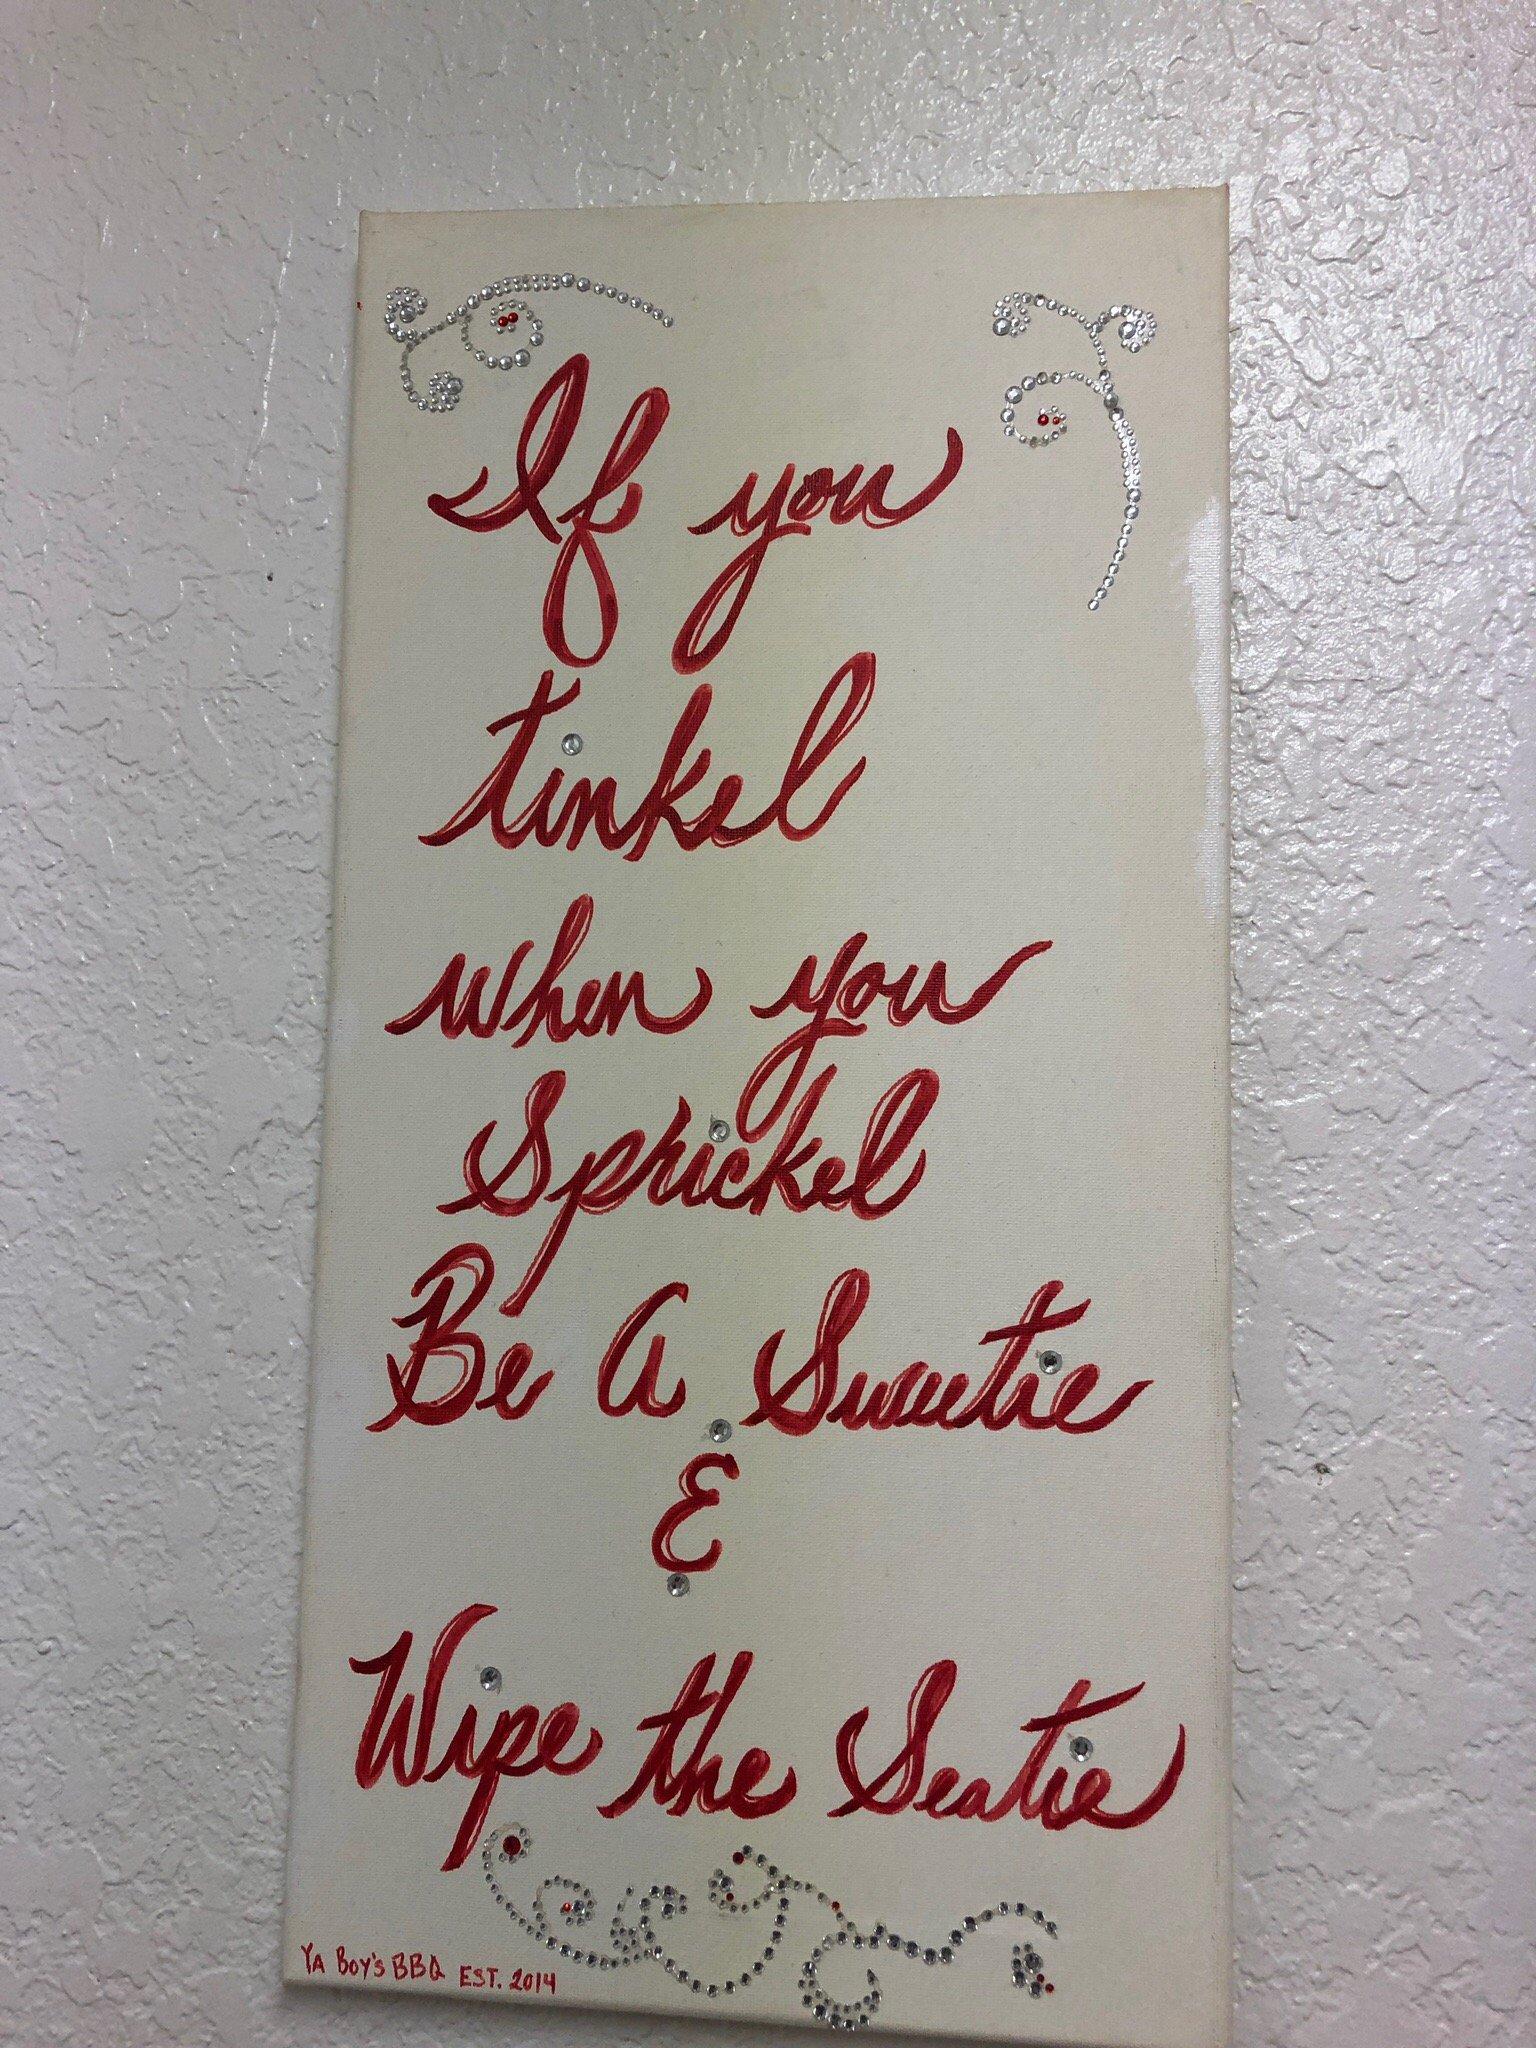 If you
tinkel
when you
Sprickel
Be A Sweetie
&
Wipe the Seatie
YA BOY'S BBQ EST. 2014